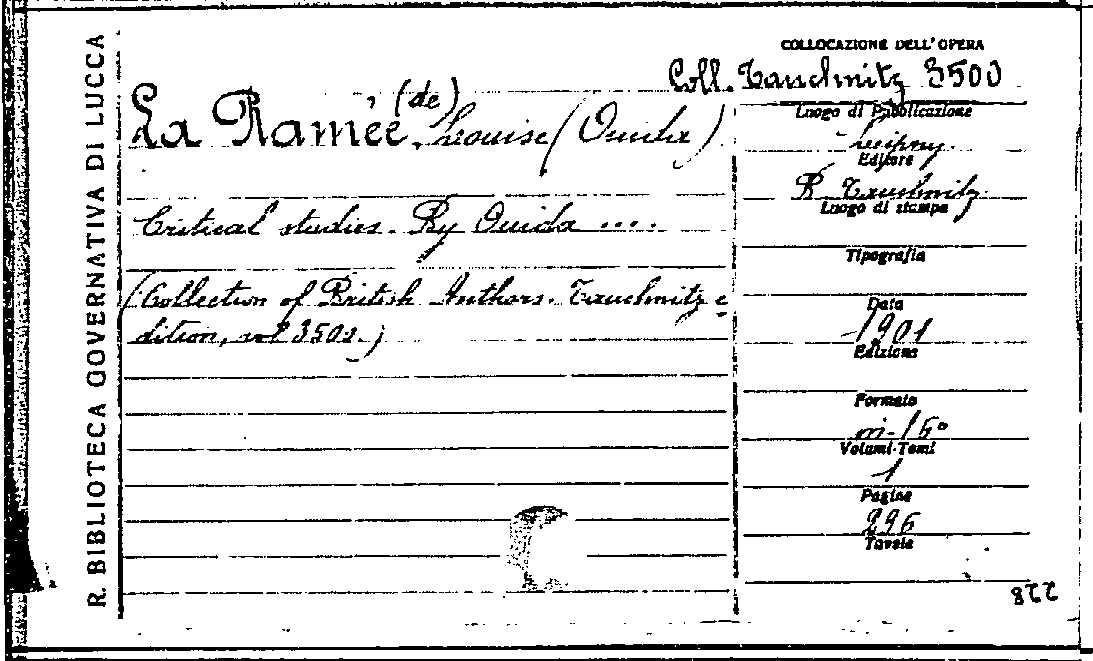 R. BIBLIOTECA GOVERNATIVA DI LUCCA
La Ramée (de), Louise (Ouida)
Critical studies. By Ouida ....
(Collection of British Authors. Tauchnitz e
dition, vol 3501.)
COLLOCAZIONE DELL'OPERA
Coll. Tauchnitz 3500
Luogo di Pubblicazione
Leipzig.
Editore
B. Tauchnitz.
Luogo di stampa
Tipografia
Data
1901
Edizione
Formato
in-16°
Volumi-Tomi
1
Pagine
296
Tavole
822